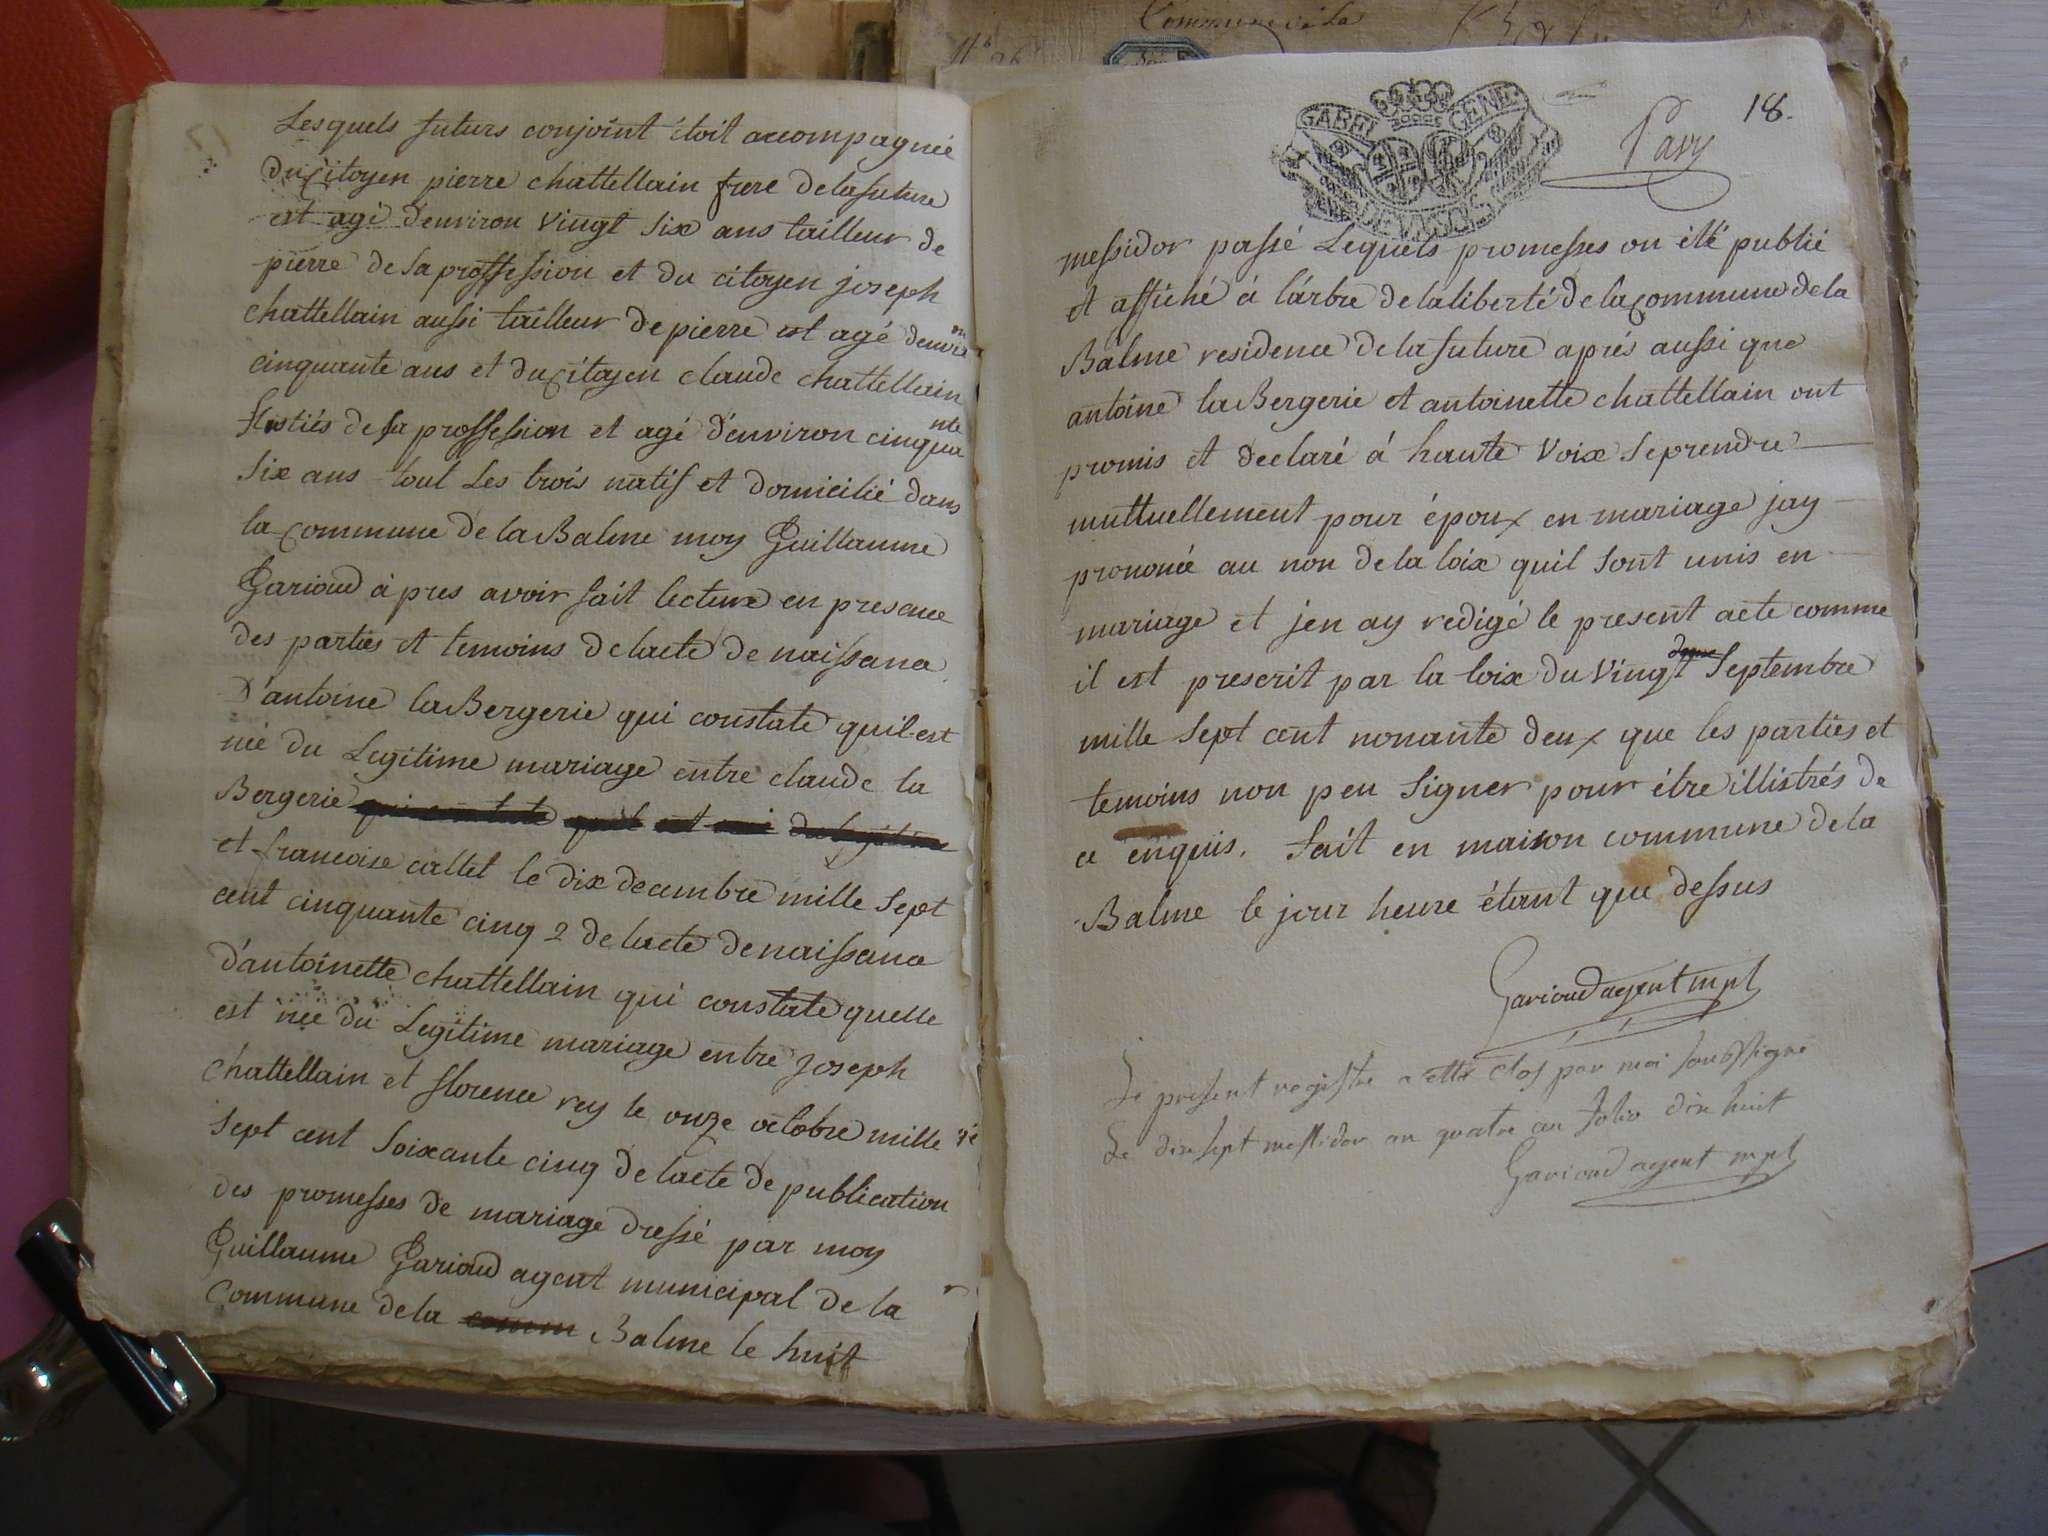 Lesquels futurs conjoint étoit accompagnée
du Citoyen pierre chattellain frere de la future
est agé d'environ vingt six ans tailleur de
pierre de sa proffession et du citoyen joseph
chattellain aussi tailleur de pierre est agé denviron
cinquante ans et du Citoyen claude chattellain
de sa proffession et agé d'environ cinquante
six ans tout Les trois natif et domicilié dans
la Commune de la Balme moy Guillaume
Garioud à pres avoir fait lecture en presance
des parties et temoins de lacte de naissance
D'antoine la Bergerie qui constate quil est
née du Legitime mariage entre claude la
Bergerie
et francoise callet le dix decembre mille sept
cent cinquante cinq 2 de lacte de naissance
d'antoinette chattellain qui constate quelle
est née du Legitime mariage entre joseph
chattellain et florence rey le onze octobre mille
sept cent soixante cinq de lacte de publication
des promesses de mariage dressé par moy
Guillaume Garioud agent municipal de la
Commune de la Balme le huit
Commune de la
GABEL GENE
Pavy
18.
messidor passé Lequels promesses on été publié
et affiché à l'árbre de la liberté de la Commune de la
Balme residence de la future aprés aussi que
antoine la Bergerie et antoinette chattellain ont
promis et declaré á haute voix se prendre
muttuellement pour époux en mariage jay
prononcé au non de la loix quil sont unis en
mariage et jen ay redigé le present acte comme
il est prescrit par la loix du vingt Septembre
mille sept cent nonante deux que les parties et
temoins non peu signer pour étre illistrés de
ce enquis. fait en maison commune de la
Balme le jour heure étant que dessus
Garioud agent mpl
Le present registre a etté clos par moi soussigné
Le dix sept messidor an quatre au folio dix huit
Garioud agent mpl